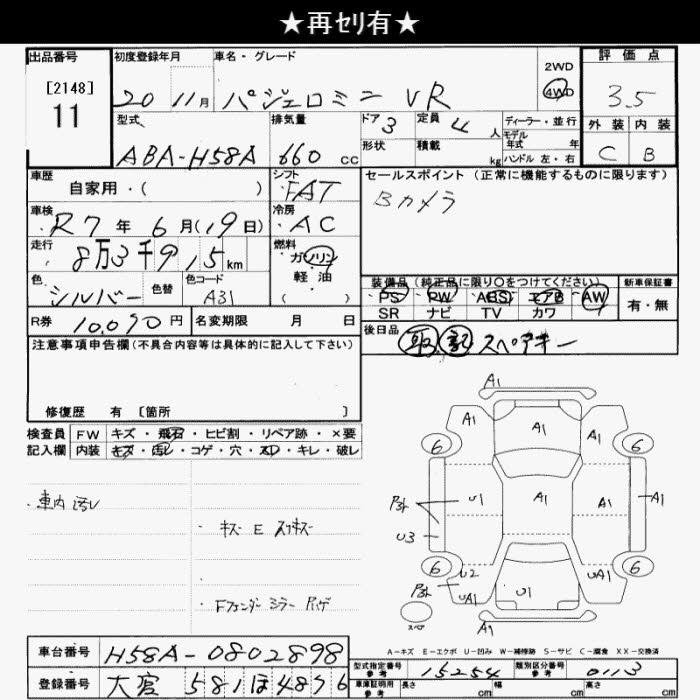 ★再ｾﾘ有★
出品番号 初度登録年月 車名・グレード 評価点
[2148] 11
20 11月 パジェロミニ VR 2WD 4WD 3.5
型式 排気量 ドア 3 定員 4 人 ディーラー・並行 外装 内装
モデル年式 年
ABA-H58A 660 cc 形状 積載 kg ハンドル 左・右 C B
車歴 シフト セールスポイント（正常に機能するものに限ります）
自家用・（ ） FAT Bカメラ
車検 冷房
R7年 6月(19日) AC
走行 燃料
8万3千915km ガソリン
軽油
( )
色 色替 色コード 装備品（純正品に限り○をつけてください） 新車保証書
シルバー A31 PS PW ABS エアB AW 有・無
SR ナビ TV カワ
R券 10,090円 名変期限 月 日 後日品 取 記 スペアキー
注意事項申告欄(不具合内容等は具体的に記入して下さい)
修復歴 有 [箇所 ]
検査員 FW キズ・飛石・ヒビ割・リペア跡・×要
記入欄 内装 キズ・汚レ・コゲ・穴・スレ・キレ・破レ
・車内汚レ
・キズ E スリキズ
・Fフェンダーミラー
A1
A1 A1 A1
6 6
U1 A1 A1 A1
U3
6 6
U2 UA1 U1 UA1
A1
スペア
A-キズ E-エクボ U-凹み W-補修跡 S-サビ C-腐食 XX-交換済
車台番号 H58A-0802898
型式指定番号 参考 15254 類別区分番号 参考 0113
登録番号 大宮 581 ほ 4876
車庫証明用 参考 長さ cm 幅 cm 高さ cm